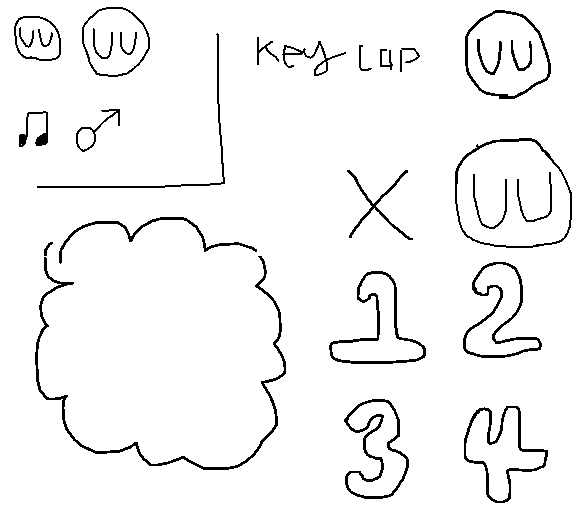 UU UU
Key Cap UU
X UU
1 2
3 4